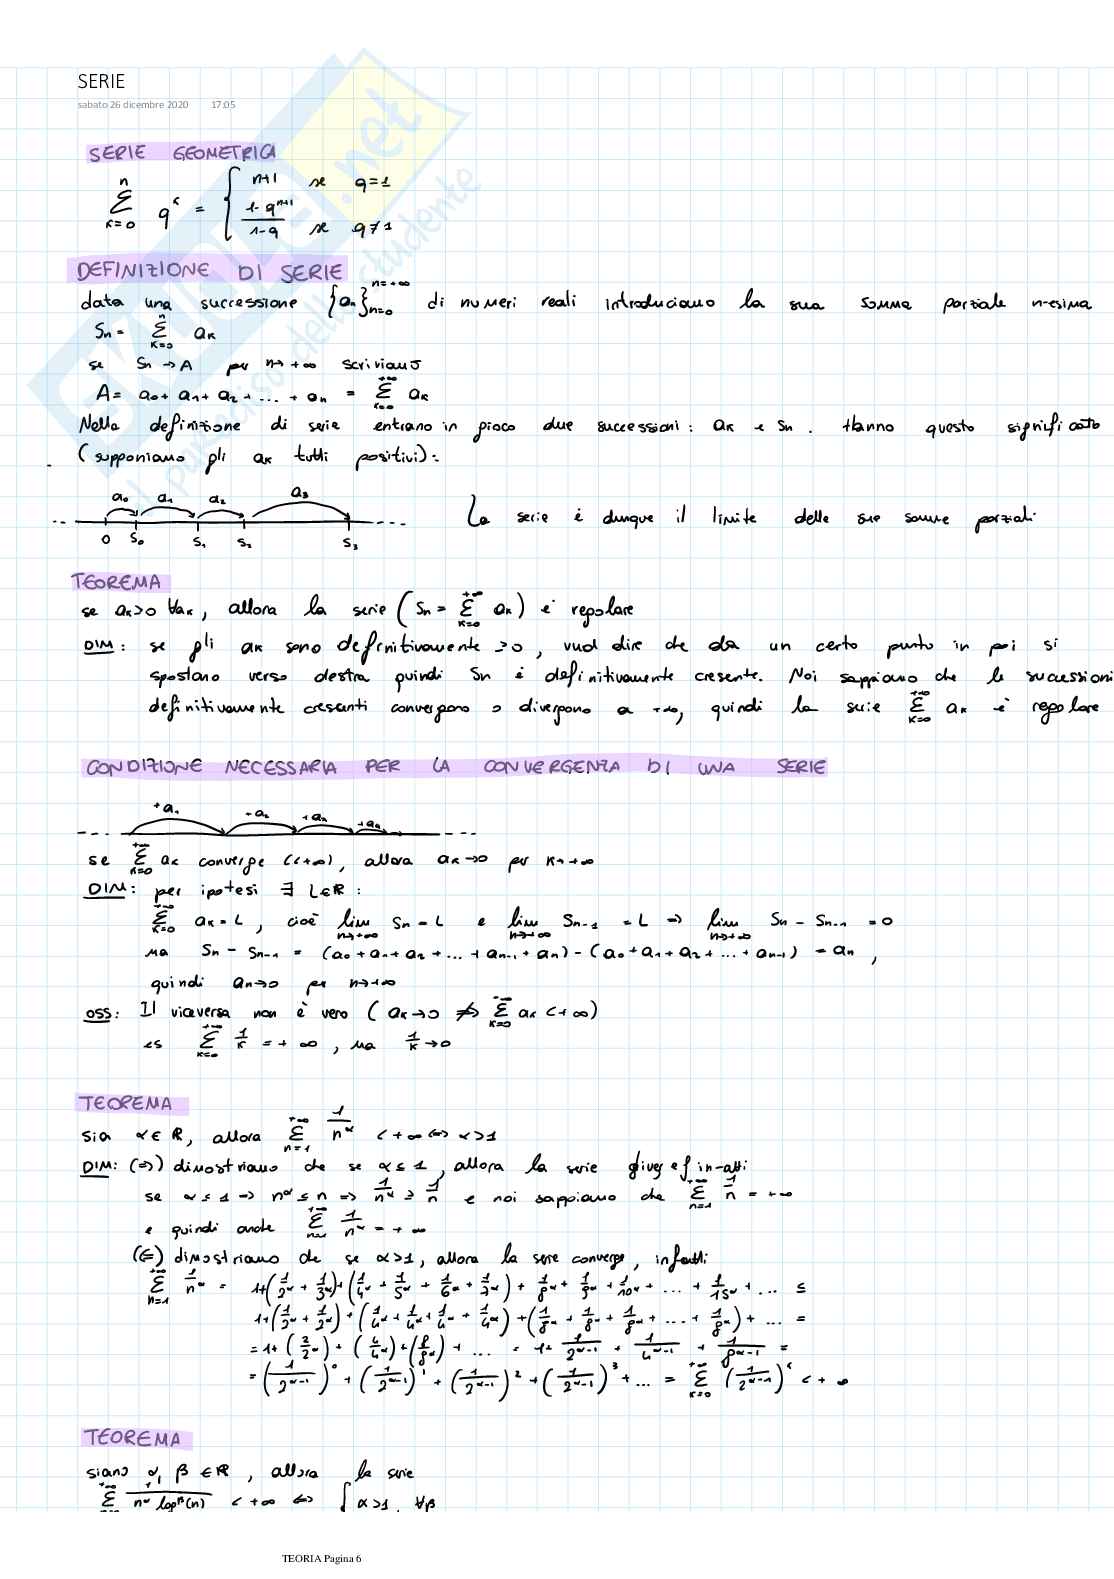 SERIE
sabato 26 dicembre 2020 17:05
SERIE GEOMETRICA
n∑k=0 q^k = { n+1 se q=1
1-q^(n+1) / 1-q se q≠1
DEFINIZIONE DI SERIE
data una successione {an} n=0 n=+∞ di numeri reali introduciamo la sua somma parziale n-esima
Sn = n∑k=0 ak
se Sn → A per n→+∞ scriviamo
A = a0+ a1+ a2 + ... + an = +∞∑k=0 ak
Nella definizione di serie entrano in gioco due successioni: ak e Sn. Hanno questo significato
(supponiamo gli ak tutti positivi):
a0 a1 a2 a3
0 S0 S1 S2 S3
La serie è dunque il limite delle sue somme parziali
TEOREMA
se ak>0 ∀ak, allora la serie (Sn = +∞∑k=0 ak) è regolare
DIM: se gli ak sono definitivamente >0, vuol dire che da un certo punto in poi si
spostano verso destra quindi Sn è definitivamente cresente. Noi sappiamo che le sucessioni
definitivamente cresenti convergono o divergono a +∞, quindi la serie +∞∑k=0 ak è regolare
CONDIZIONE NECESSARIA PER LA CONVERGENZA DI UNA SERIE
+a1 +a2 +a3 +a4
se +∞∑k=0 ak converge (<+∞), allora ak→0 per k→+∞
DIM: per ipotesi ∃ L∈R :
+∞∑k=0 ak = L, cioè lim n→+∞ Sn = L e lim n→+∞ Sn-1 = L ⇒ lim n→+∞ Sn - Sn-1 = 0
ma Sn - Sn-1 = (a0 + a1 + a2 + ... + an-1 + an) - (a0 + a1 + a2 + ... + an-1) = an,
quindi an→0 per n→+∞
OSS: Il viceversa non è vero (ak→0 ⇏ +∞∑k=0 ak <+∞)
es +∞∑k=0 1/k = +∞, ma 1/k → 0
TEOREMA
sia α∈R, allora +∞∑n=1 1/n^α <+∞ ⇔ α>1
DIM: (⇒) dimostriamo che se α≤1, allora la serie
se α≤1 ⇒ n^α ≤ n ⇒ 1/n^α ≥ 1/n e noi sappiamo che +∞∑n=1 1/n = +∞
e quindi anche +∞∑n=1 1/n^α = +∞
(⇐) dimostriamo che se α>1, allora la serie converge, infatti
+∞∑n=1 1/n^α = 1+(1/2^α + 1/3^α)+(1/4^α + 1/5^α + 1/6^α + 1/7^α) + 1/8^α + 1/9^α + 1/10^α + ... + 1/15^α + ... ≤
1+(1/2^α + 1/2^α) + (1/4^α + 1/4^α + 1/4^α + 1/4^α) + (1/8^α + 1/8^α + 1/8^α + ... + 1/8^α) + ... =
= 1+ (2/2^α) + (4/4^α) + (8/8^α) + ... = 1+ 1/2^(α-1) + 1/4^(α-1) + 1/8^(α-1) =
= (1/2^(α-1))^0 + (1/2^(α-1))^1 + (1/2^(α-1))^2 + (1/2^(α-1))^3 + ... = +∞∑k=0 (1/2^(α-1))^k < +∞
TEOREMA
siano α, β ∈R, allora la serie
+∞∑ 1/n^α log^β(n) < +∞ ⇔ { α>1, ∀β
TEORIA Pagina 6